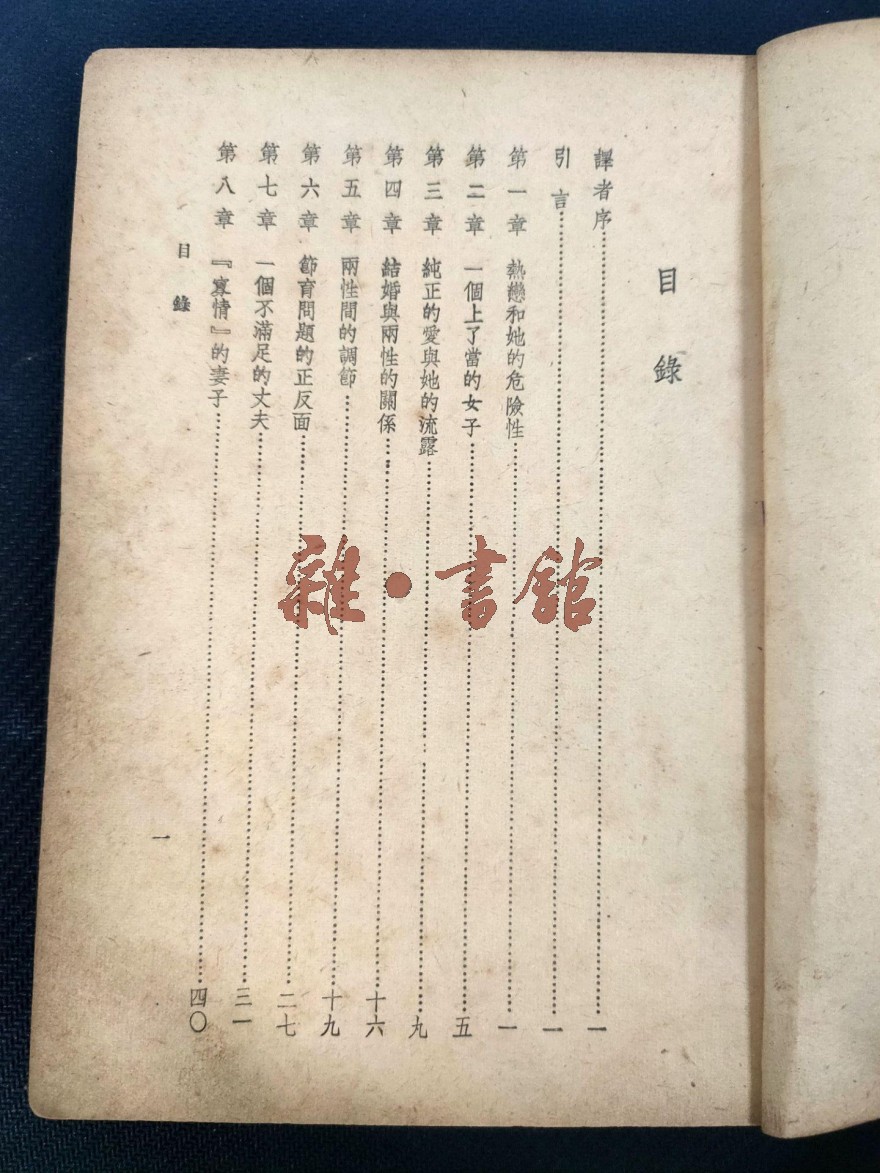 目錄
譯者序……一
引言……一
第一章 熱戀和她的危險性……一
第二章 一個上了當的女子……五
第三章 純正的愛與她的流露……九
第四章 結婚與兩性的關係……十六
第五章 兩性間的調節……十九
第六章 節育問題的正反面……二七
第七章 一個不滿足的丈夫……三一
第八章 『寡情』的妻子……四〇
目錄
一
雜·書館